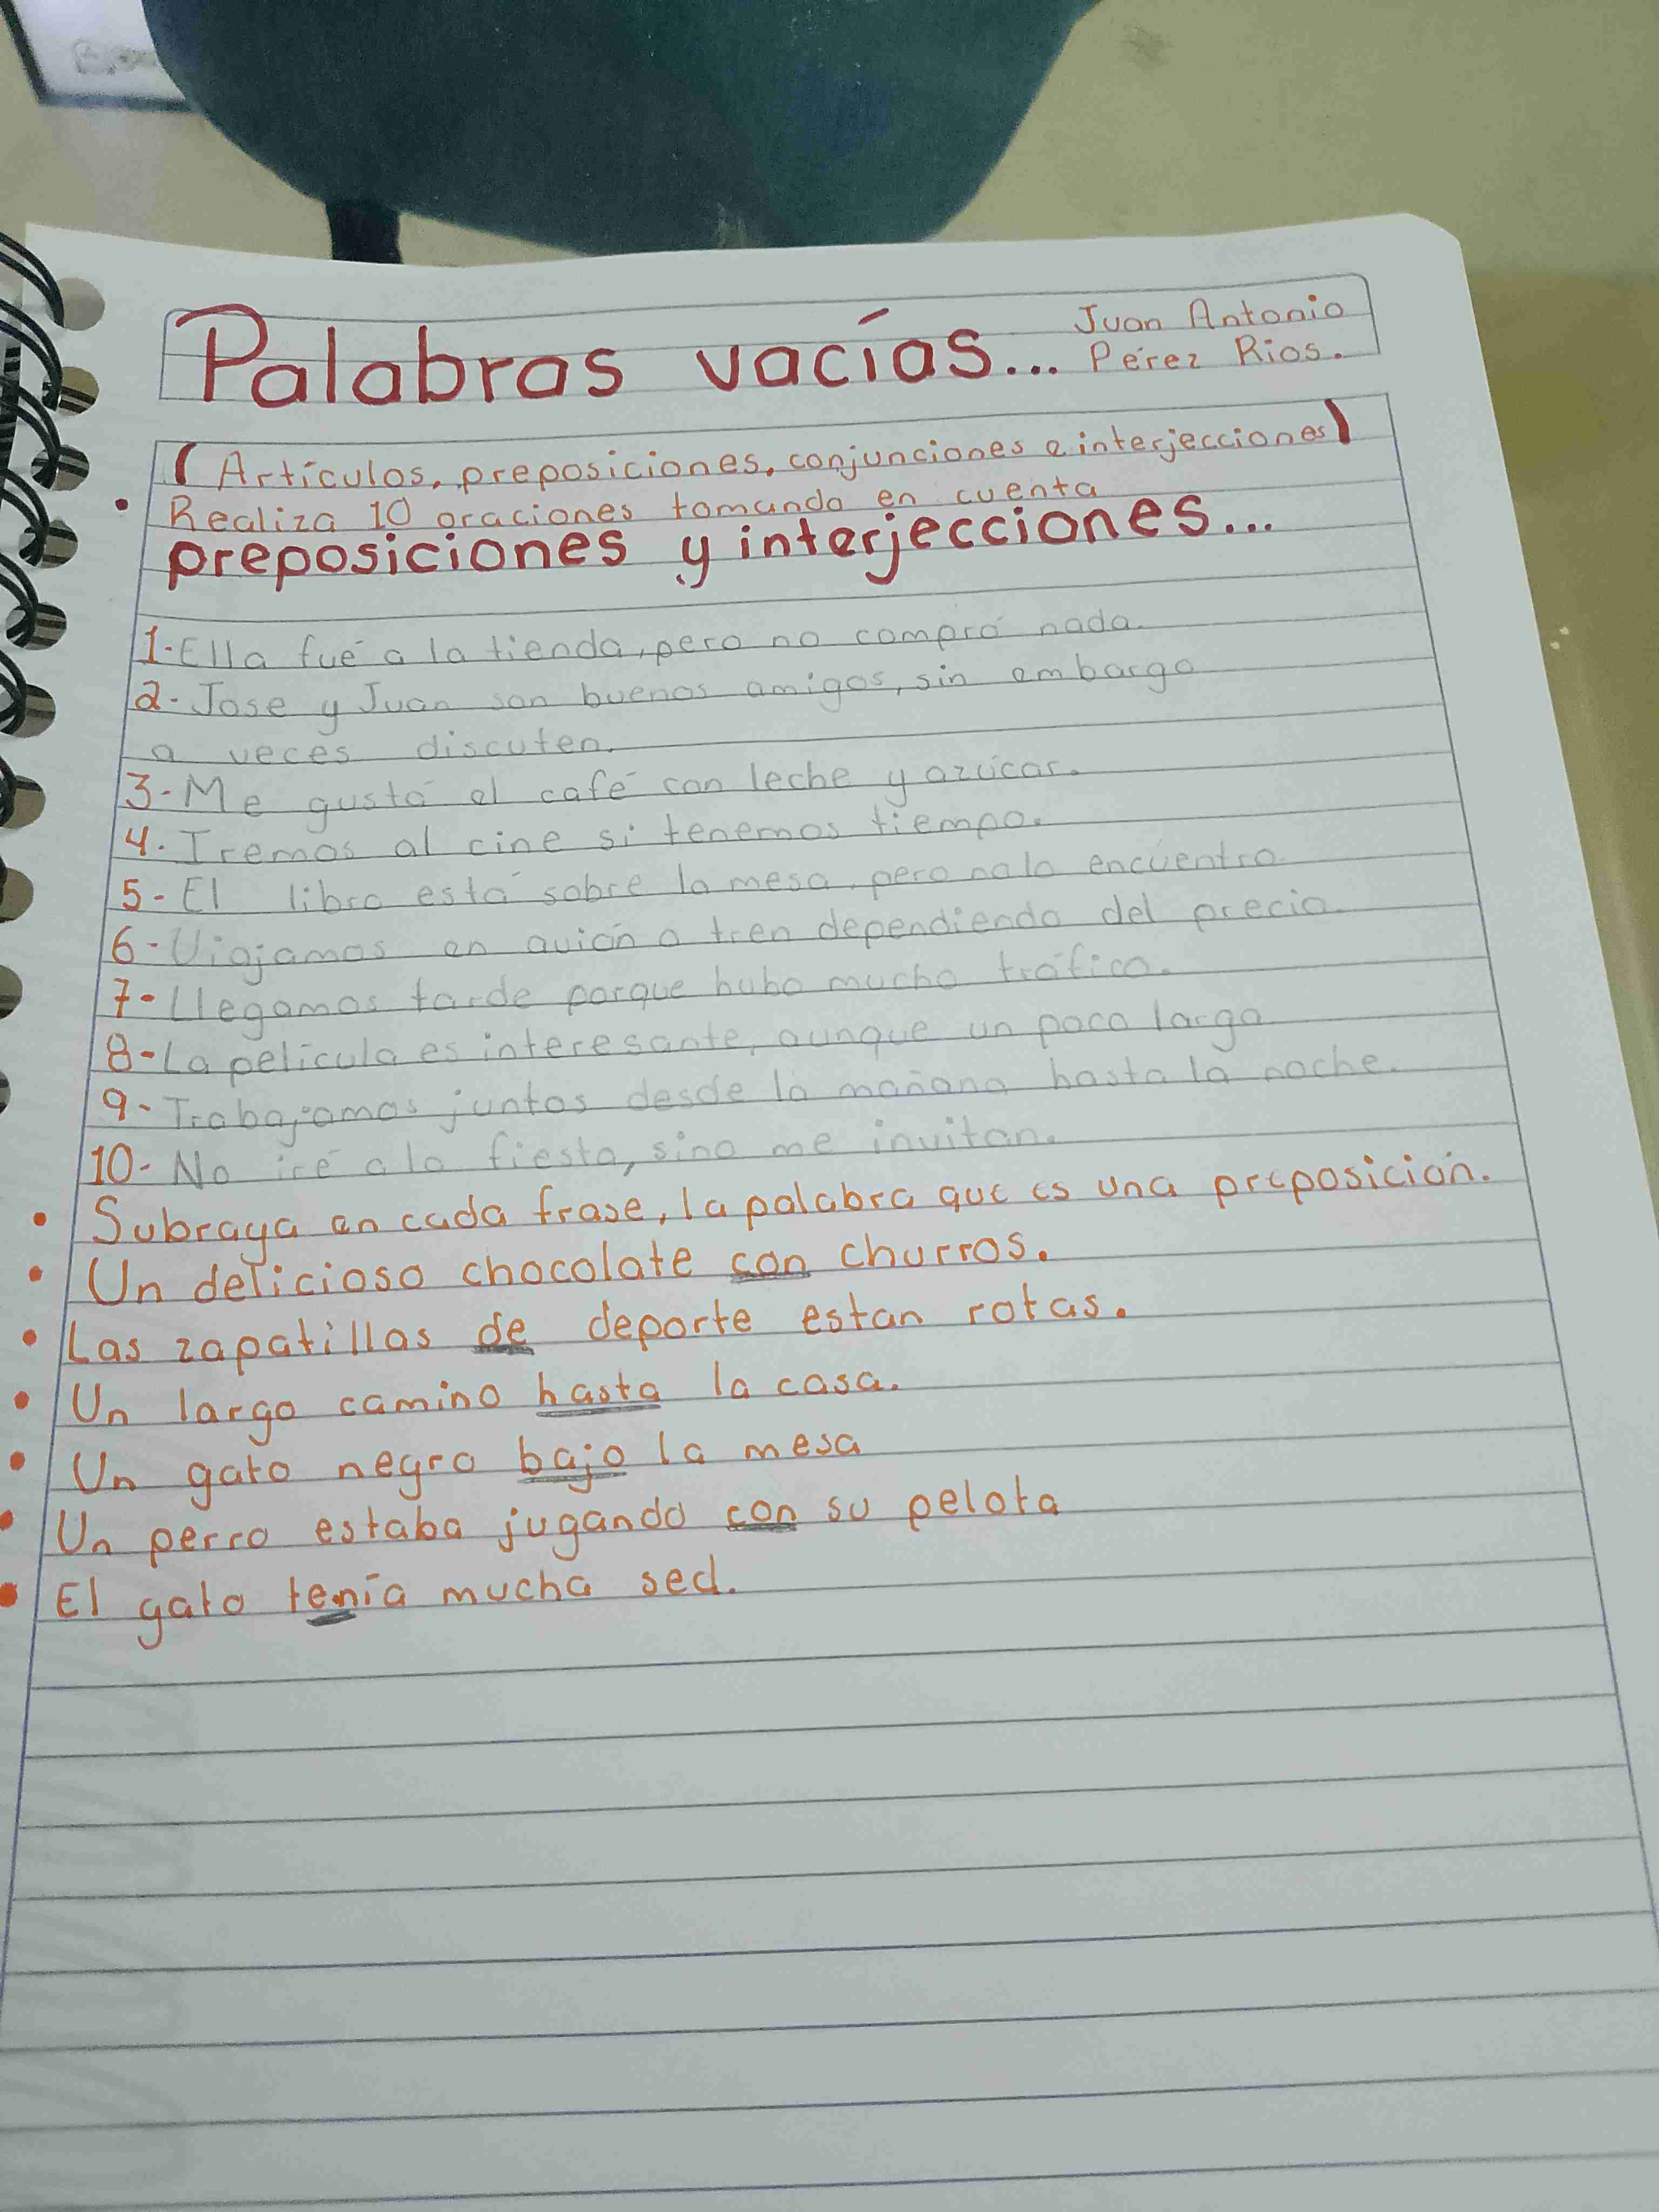 Palabras vacías...
Juan Antonio
Pérez Rios.
(Artículos, preposiciones, conjunciones e interjecciones)
• Realiza 10 oraciones tomando en cuenta
preposiciones y interjecciones...
1-Ella fué a la tienda, pero no compró nada.
2-Jose y Juan son buenos amigos, sin embargo
a veces discuten.
3-Me gustá el café con leche y azúcar.
4. Iremos al cine si tenemos tiempo.
5-El libro está sobre la mesa, pero no lo encuentro.
6-Viajamos en avión o tren dependiendo del precio.
7-Llegamos tarde porque hubo mucho tráfico.
8-La película es interesante, aunque un poco larga
9-Trabajamos juntos desde la mañana hasta la noche.
10-No iré a la fiesta, sino me invitan.
• Subraya en cada frase, la palabra que es una preposición.
• Un delicioso chocolate con churros.
• Las zapatillas de deporte estan rotas.
• Un largo camino hasta la casa.
• Un gato negro bajo la mesa
• Un perro estaba jugando con su pelota
• El gato tenía mucha sed.